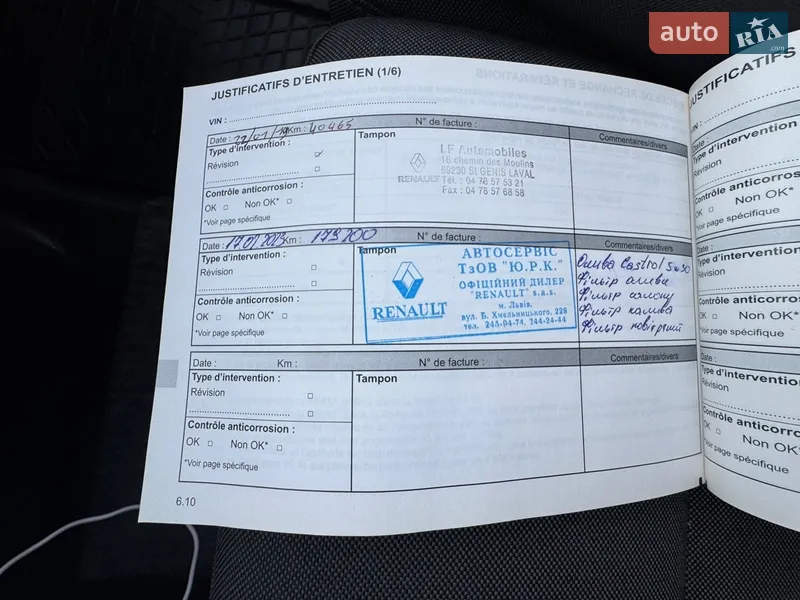 auto RIA.com
JUSTIFICATIFS D'ENTRETIEN (1/6)
VIN :
Date : 22/01/19 Km : 40465 N° de facture :
Type d'intervention :
Révision
Contrôle anticorrosion :
OK Non OK*
*Voir page spécifique
Tampon
LF Automobiles
16 chemin des Moulins
69230 St GENIS LAVAL
RENAULT Tél. : 04 78 57 53 21
Fax : 04 78 57 68 58
Commentaires/divers
Date : Km : 179200 N° de facture :
Type d'intervention :
Révision
Contrôle anticorrosion :
OK Non OK*
*Voir page spécifique
Tampon
АВТОСЕРВІС
ТзОВ "Ю.Р.К."
ОФІЦІЙНИЙ ДИЛЕР
"RENAULT" s.a.s.
м. Львів,
вул. Б. Хмельницького, 226
RENAULT
Commentaires/divers
Олива Castrol 5w30
Фільтр оливи
Фільтр салону
Фільтр палива
Фільтр повітряний
Date : Km : N° de facture :
Type d'intervention :
Révision
Contrôle anticorrosion :
OK Non OK*
*Voir page spécifique
Tampon
Commentaires/divers
6.10
JUSTIFICATIFS
VIN :
Date :
Type d'intervention
Révision
Contrôle anticorros
OK Non OK*
*Voir page spécifique
Date :
Type d'intervention
Révision
Contrôle anticorro
OK Non OK*
*Voir page spécifique
Date :
Type d'interventio
Révision
Contrôle anticorr
OK Non OK*
*Voir page spécifique